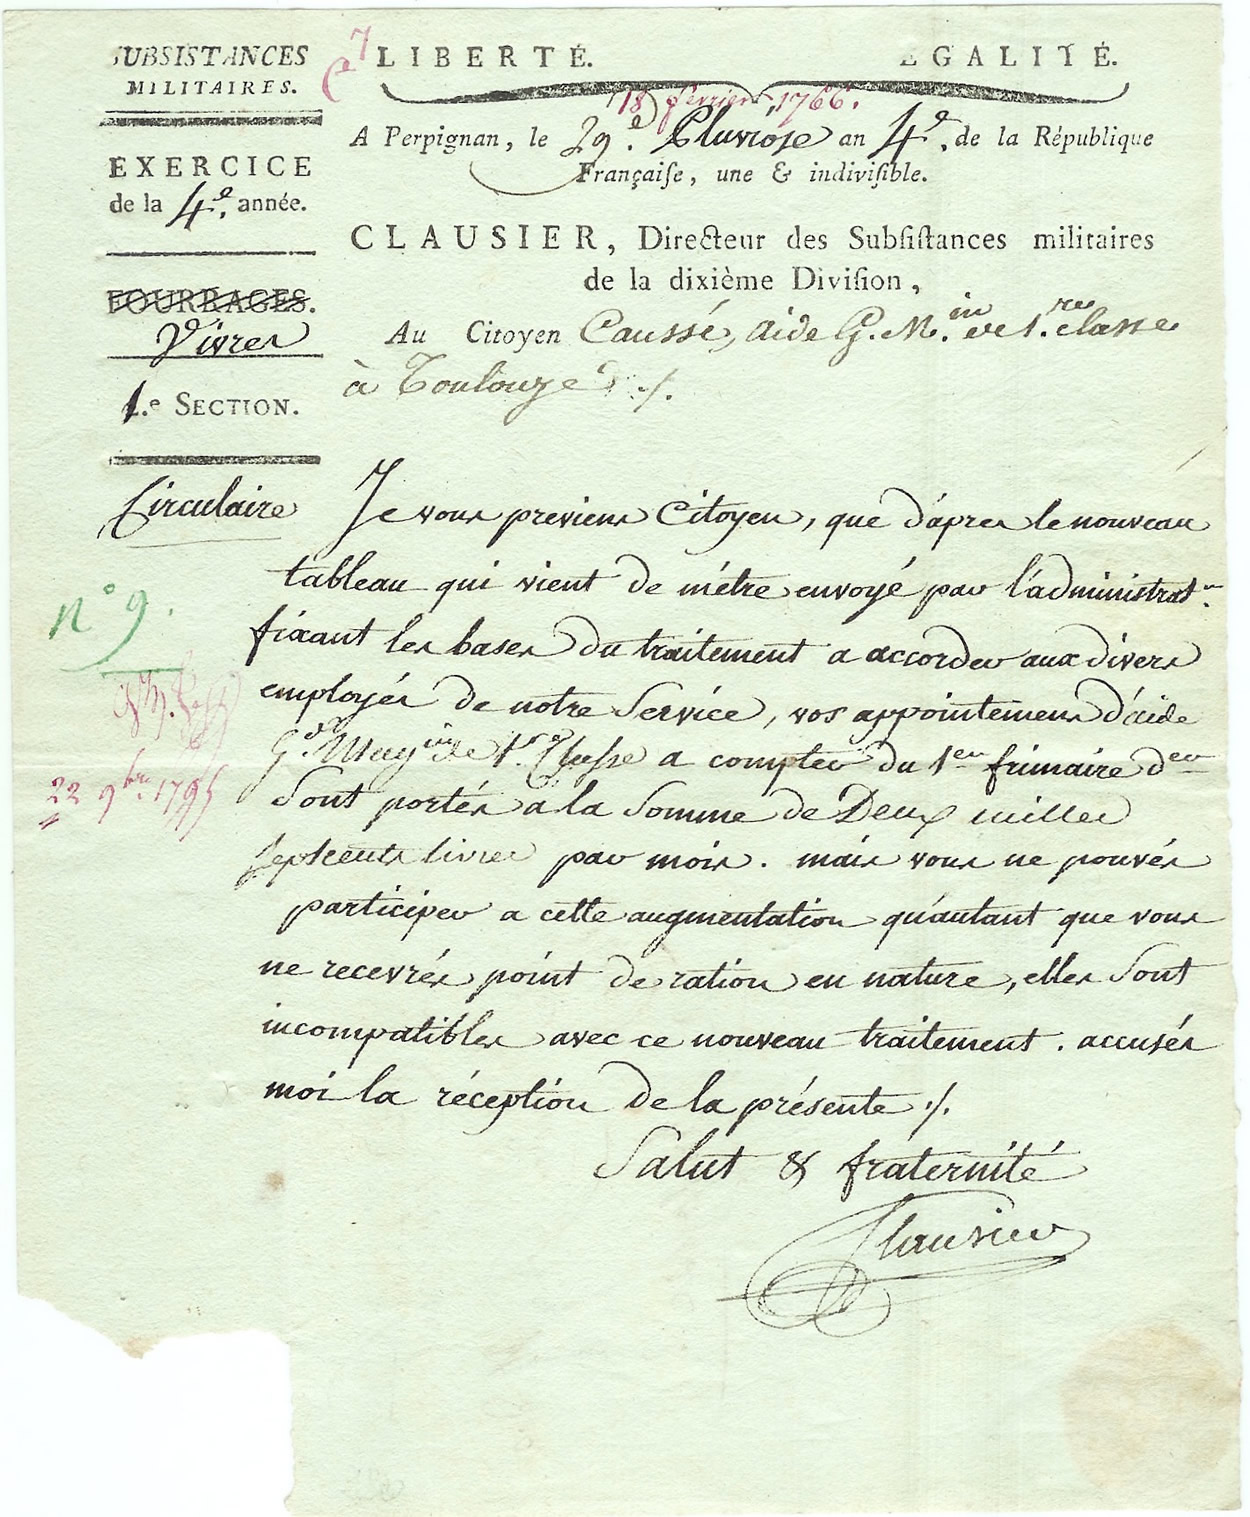 SUBSISTANCES
MILITAIRES.
EXERCICE
de la 4e. année.
FOURRAGES.
Vivres
1.e SECTION.
Circulaire
N° 9.
22 9bre. 1795
LIBERTÉ. ÉGALITÉ.
18 février 1766.
A Perpignan, le 29e. Pluviôse an 4e. de la République
Françaiſe, une & indiviſible.
CLAUSIER, Directeur des Subſiſtances militaires
de la dixième Diviſion,
Au Citoyen Caussé, aide G. M.in de 1.re classe
à Toulouze ./.
Je vous previens Citoyen, que d'àpres le nouveau
tableau qui vient de m'étre envoyé par l'administrat.n
fixant les bases du traitement a accorder aux divers
employés de notre Service, vos appointemens d'aide
G.de Mag.in de 1.re Classe a compter du 1er frimaire der
Sont portés a la Somme de Deux milles
Septcents livres par mois. mais vous ne pouvés
participer a cette augmentation qu'autant que vous
ne recevrés point de ration en nature, elles Sont
incompatibles avec ce nouveau traitement. accusés
moi la réception de la présente ./.
Salut & fraternité
Clausier